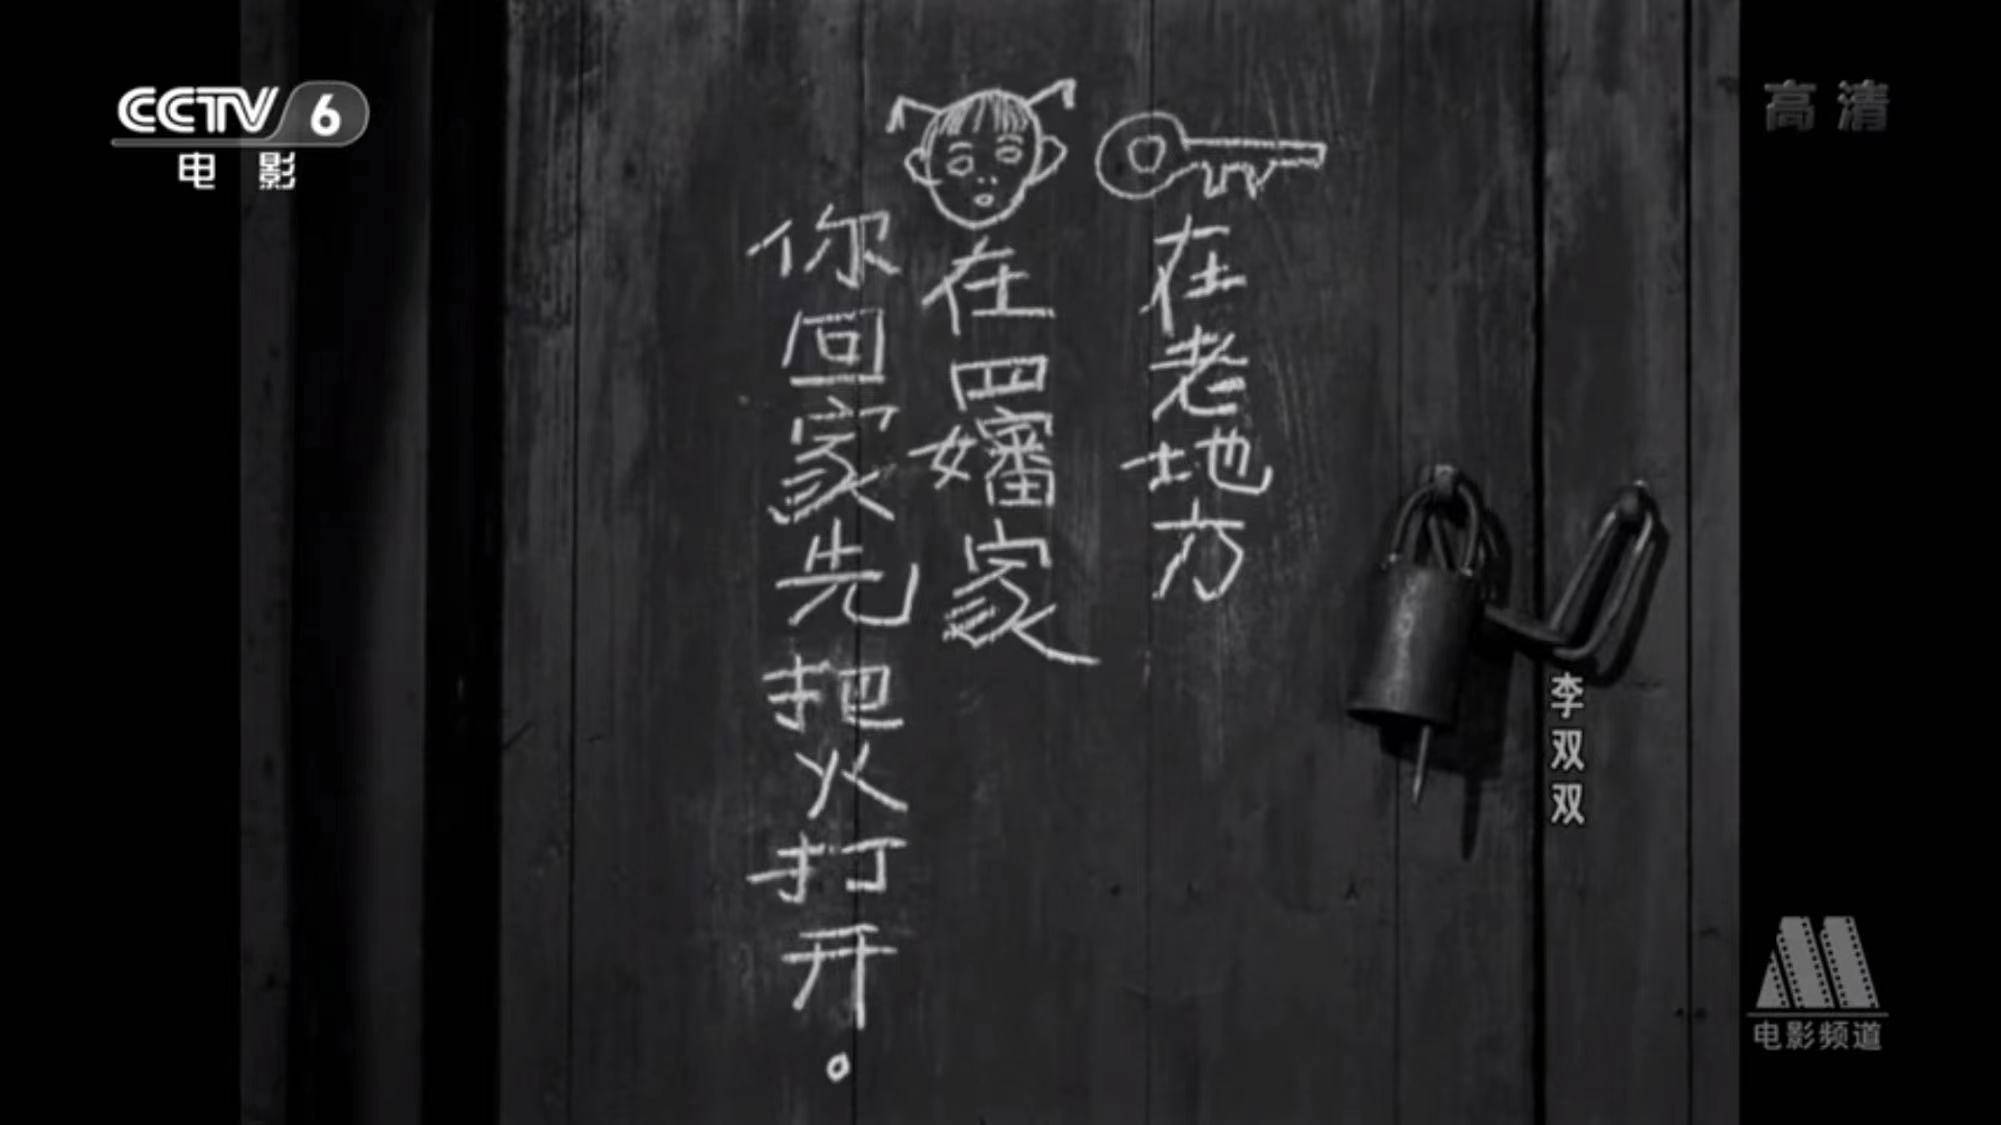 CCTV 6
电影
高清
在老地方
在四嬸家
你回家先把火打开。
李双双
电影频道